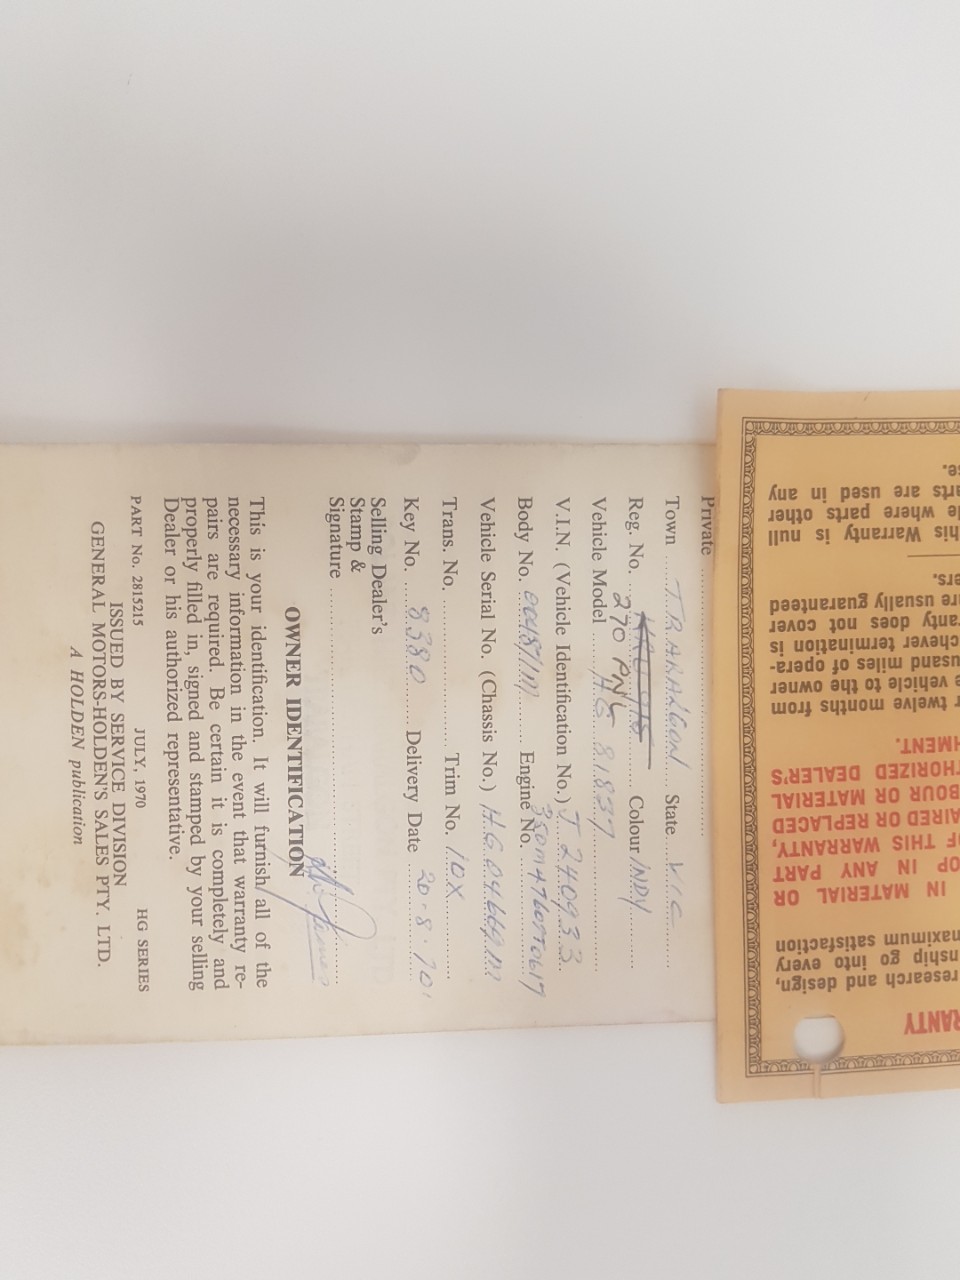 Private
Town TRARALGON State VIC.
Reg. No. Colour INDY
270 PNL
Vehicle Model HG 81837
V.I.N. (Vehicle Identification No.) J 240933
Body No. Engine No.
Vehicle Serial No. (Chassis No.)
Trans. No. Trim No. 10X
Key No. 8380 Delivery Date 20-8-70
Selling Dealer's
Stamp &
Signature
OWNER IDENTIFICATION
This is your identification. It will furnish all of the
necessary information in the event that warranty re-
pairs are required. Be certain it is completely and
properly filled in, signed and stamped by your selling
Dealer or his authorized representative.
PART No. 2815215 JULY, 1970 HG SERIES
ISSUED BY SERVICE DIVISION
GENERAL MOTORS-HOLDEN'S SALES PTY. LTD.
A HOLDEN publication
RANTY
research and design,
nship go into every
maximum satisfaction
IN MATERIAL OR
OP IN ANY PART
OF THIS WARRANTY,
AIRED OR REPLACED
BOUR OR MATERIAL
THORIZED DEALER'S
HMENT.
r twelve months from
e vehicle to the owner
usand miles of opera-
chever termination is
ranty does not cover
are usually guaranteed
ers.
his Warranty is null
le where parts other
arts are used in any
se.